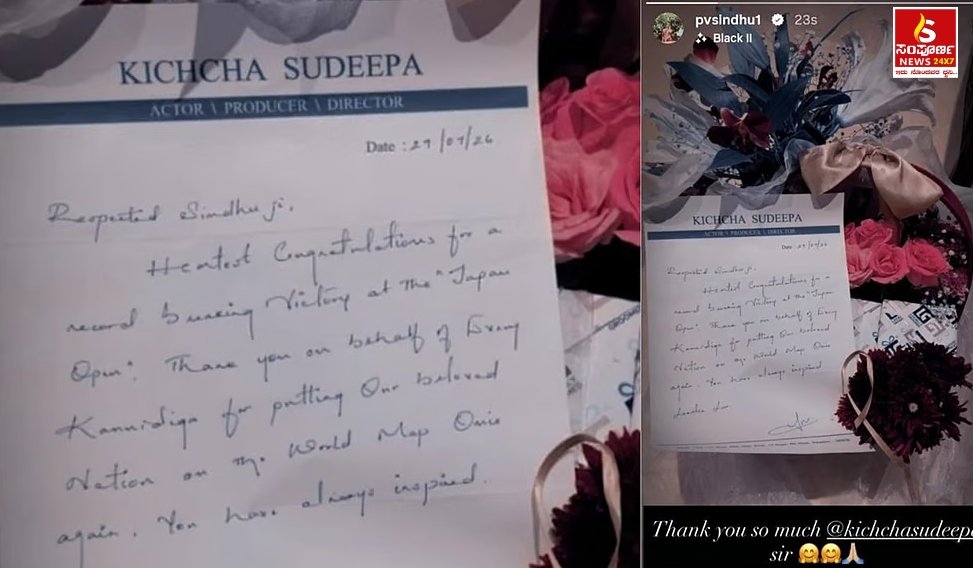 KICHCHA SUDEEPA
ACTOR \ PRODUCER \ DIRECTOR
Date : 27/07/26
Respected Sindhu ji,
Heartest Congratulations for a
record breaking Victory at the "Japan
Open". Thank you on behalf of Every
Kannadiga for putting Our beloved
Nation on the World Map Once
again. You have always inspired.
pvsindhu1 23s
Black II
ಸಂಪೂರ್ಣ
NEWS 24X7
ಇದು ನೊಂದವರ ಧ್ವನಿ
KICHCHA SUDEEPA
ACTOR \ PRODUCER \ DIRECTOR
Date : 27/07/26
Respected Sindhu ji,
Heartest Congratulations for a
record breaking Victory at the "Japan
Open". Thank you on behalf of Every
Kannadiga for putting Our beloved
Nation on the World Map Once
again. You have always inspired
Thank you so much @kichchasudeepa
sir 🤗🤗🙏🏻